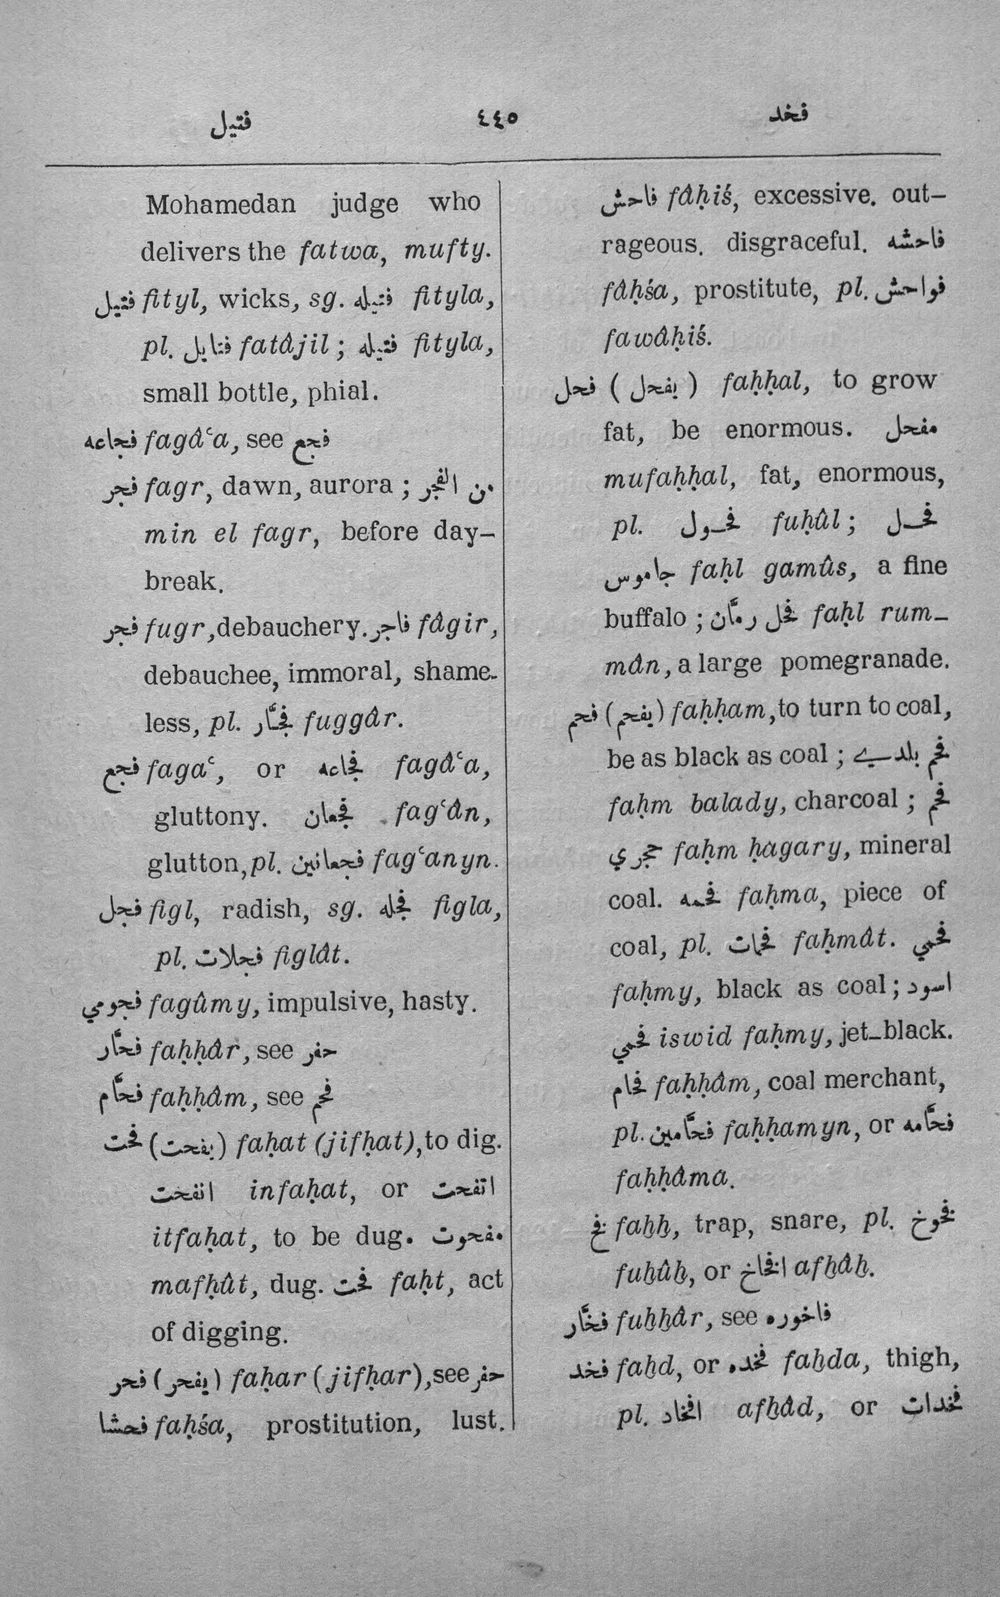 فتيل ٤٤٥ فخد
Mohamedan judge who
delivers the fatwa, mufty.
فتيل fityl, wicks, sg. فتيله fityla,
pl. فتايل fatâjil; فتيله fityla,
small bottle, phial.
فجاعه fagâʿa, see فجع
فجر fagr, dawn, aurora; من الفجر
min el fagr, before day-
break.
فجر fugr, debauchery. فاجر fâgir,
debauchee, immoral, shame-
less, pl. فجّار fuggâr.
فجع fagaʿ, or فجاعه fagâʿa,
gluttony. فجعان fagʿân,
glutton, pl. فجعانين fagʿanyn.
فجل figl, radish, sg. فجله figla,
pl. فجلات figlât.
فجومي fagûmy, impulsive, hasty.
فحّار faḥḥâr, see حفر
فحّام faḥḥâm, see فحم
فحت (يفحت) faḥat (jifḥat), to dig.
انفحت infaḥat, or اتفحت
itfaḥat, to be dug. مفحوت
mafḥût, dug. فحت faḥt, act
of digging.
فحر (يفحر) faḥar (jifḥar), see حفر
فحشا faḥśa, prostitution, lust.
فاحش fâḥiś, excessive. out-
rageous. disgraceful. فاحشه
fâḥśa, prostitute, pl. فواحش
fawâḥiś.
فحل (يفحل) faḥḥal, to grow
fat, be enormous. مفحل
mufaḥḥal, fat, enormous,
pl. فحول fuḥûl; فحل
جاموس faḥl gamûs, a fine
buffalo; فحل رمّان faḥl rum-
mân, a large pomegranade.
فحم (يفحم) faḥḥam, to turn to coal,
be as black as coal; فحم بلدي
faḥm balady, charcoal; فحم
حجري faḥm ḥagary, mineral
coal. فحمه faḥma, piece of
coal, pl. فحمات faḥmât. فحمي
faḥmy, black as coal; اسود
فحمي iswid faḥmy, jet-black.
فحام faḥḥâm, coal merchant,
pl. فحّامين faḥḥamyn, or فحّامه
faḥḥâma.
فخ faḫḫ, trap, snare, pl. فخوخ
fuḫûḫ, or افخاخ afḫâḫ.
فخّار fuḫḫâr, see فاخوره
فخد faḫd, or فخده faḫda, thigh,
pl. افخاد afḫâd, or فخدات